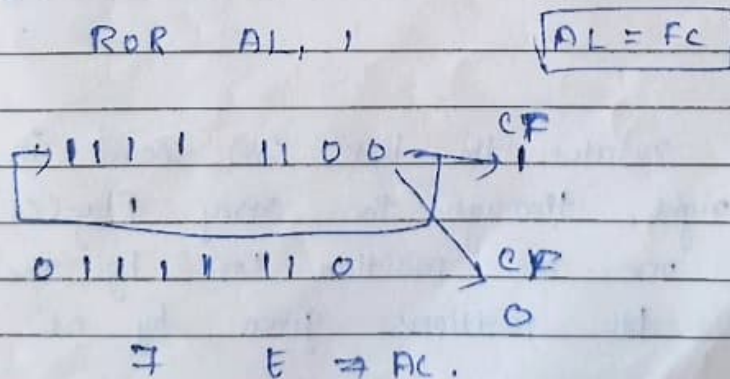 ROR AL, 1 AL = FC
1111 1100 CF 1
0111 1110 CF
0
7 E → AL.